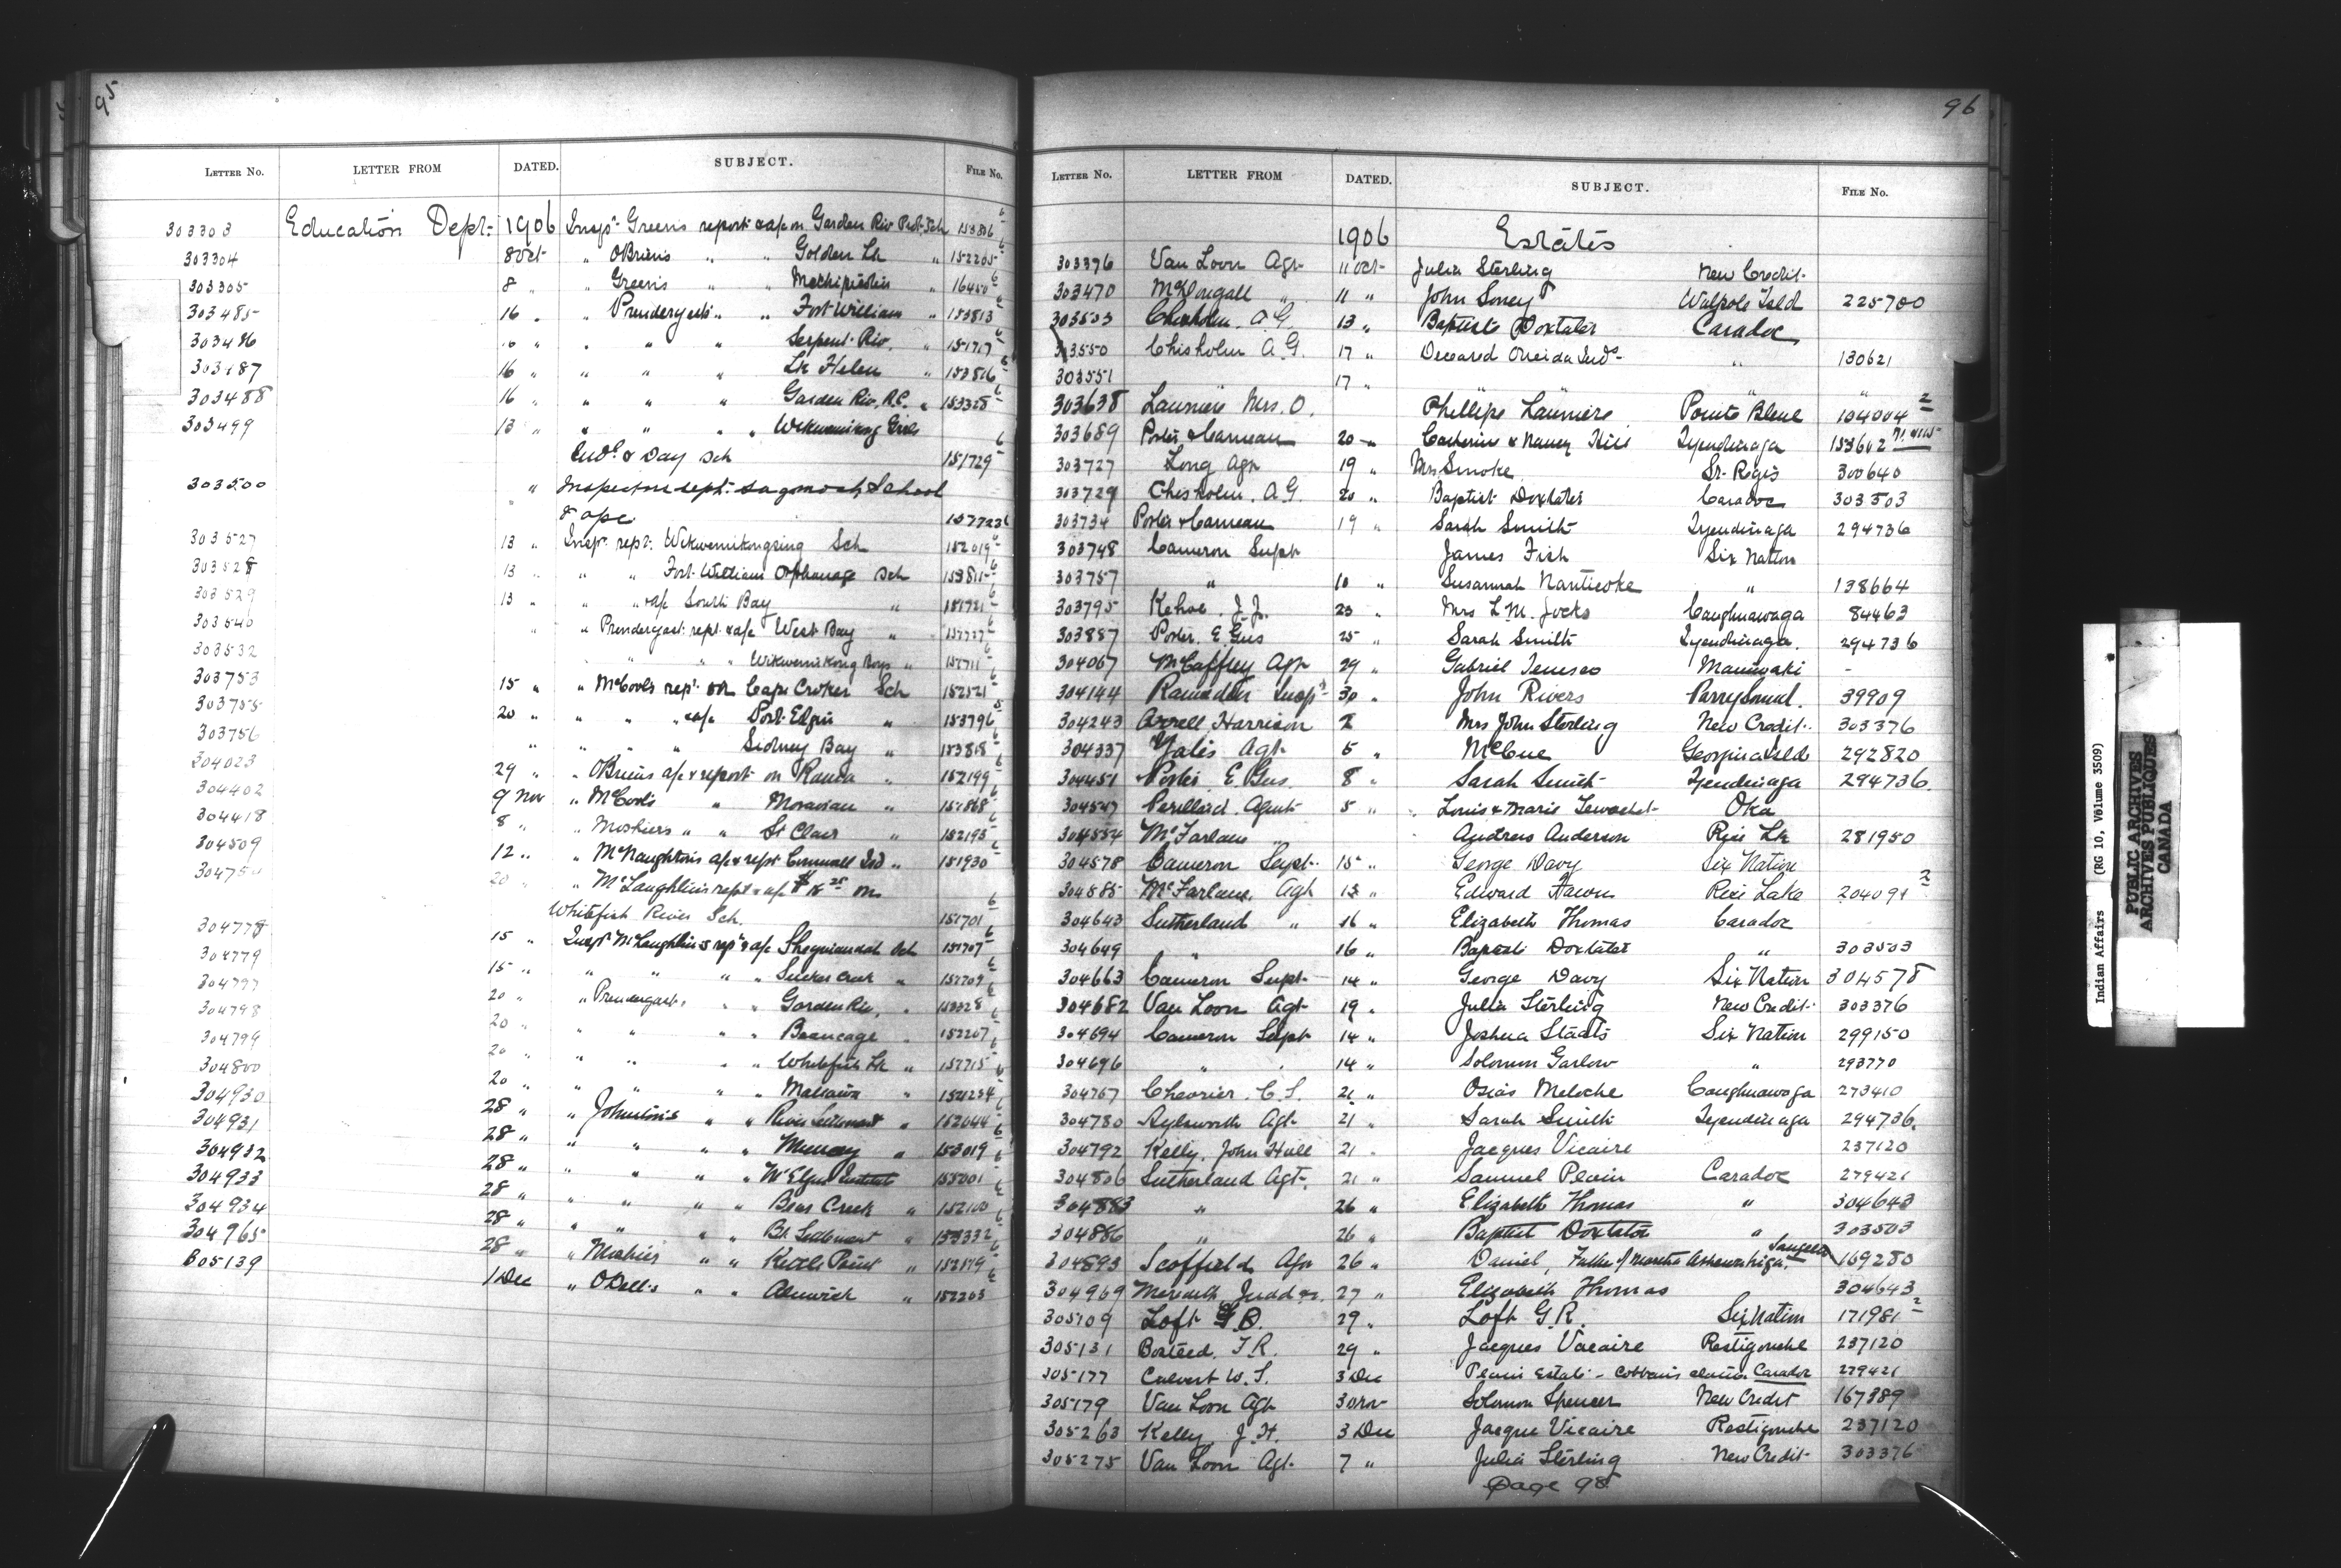 95
LETTER NO. LETTER FROM DATED. SUBJECT. FILE NO.
303303 Education Dept. 1906 Insp. Green's report & a/c on Garden Riv Prot. Sch 153306 6
303304 8 Oct " O'Brien's " " Golden Lk " 152205 6
303305 8 " " Green's " " Michipicoten 16450 6
303485 16 " " Prendergast's " " Fort William " 153813 6
303486 " " " " " Serpent Riv. " 151717 6
303487 16 " " " " Lk Helen " 153816 6
303488 16 " " " " Garden Riv. R.C. " 153328 6
303499 13 " " " " " Wikwemikong Girls
Ind. & Day Sch 151729 6
303500 " Inspector rept. Sagamook School
& a/pc 157723 6
303527 13 " Insp. rept. Wikwemikongsing Sch 152019 6
303528 13 " " " Fort William Orphanage Sch 153811 6
303529 13 " " " a/c South Bay " 151721 6
303540 " " Prendergast rept. & a/c West Bay " 157727 6
303532 " " " Wikwemikong Boys " 157711 6
303753 15 " " McCool's rept. on Cape Croker Sch 152521 6
303755 20 " " " " a/c Port Elgin " 153796 5
303756 " " " " Sidney Bay " 153818 6
304023 29 " " O'Briens a/c & report on Rama " 152199 6
304402 9 Nov " McCool's " Moravian " 151868 6
304418 8 " " Moshier's " " St Clair " 152195 6
304509 12 " " McNaughton's a/c & rept Cornwall Isd " 151930 6
304750 20 " " McLaughlin's rept & a/c $18 25 on
Whitefish River Sch. 151701 6
304778 15 " Insp. McLaughlin's rept & a/c Sheguiandah Sch 151707 6
304779 15 " " " " " Sucker Creek " 157709 6
304797 20 " " Prendergast's " " Garden Riv. " 153328 6
304798 20 " " " " " Beaucage " 152207 6
304799 20 " " " " " Whitefish Lk " 157715 6
304800 20 " " " " " Mattawa " 151234 6
304930 28 " " Johnston's " " River Settlement " 152044 6
304931 28 " " " " " Muncey " 153019 6
304932 28 " " " " " Mt Elgin Institute 155001 6
304933 28 " " " " " Bear Creek " 152100 6
304934 28 " " " " " Bk Settlement " 153332 6
304965 28 " " Moshier's " " Kettle Point " 152879 6
305139 1 Dec " Odell's " " Alnwick " 152203 6
96
LETTER NO. LETTER FROM DATED. SUBJECT. FILE NO.
1906 Estates
303376 Van Loon Agt 11 Oct Julia Sterling New Credit
303470 McDougall " 11 " John Soney Walpole Isld 225700
303503 Chisholm. A.G. 13 " Baptiste Doxtater Caradoc
303550 Chisholm A.G. 17 " Deceased Oneida Inds " 130621
303551 17 " "
303638 Launiere Mrs. O. Phillipe Launiere Pointe Bleue 104004 2
303689 Porter & Carnew 20 " Catherine & Nancy Hill Tyendinaga 153602
303727 Long Agt 19 " Mrs Smoke St. Regis 300640
303729 Chisholm. A.G. 20 " Baptist Doxtater Caradoc 303503
303734 Porter & Carnew 19 " Sarah Smith Tyendinaga 294736
303748 Cameron Supt James Fish Six Nation
303757 " 10 " Susannah Nanticoke " 138664
303795 Kehoe. J.J. 23 " Mrs L.M. Jocks Caughnawaga 84463
303887 Porter. E. Gus 25 " Sarah Smith Tyendinaga. 294736
304067 McCaffrey Agt 29 " Gabriel Tenesco Maniwaki -
304144 Ramsden Insp. 30 " John Rivers Parry Sound. 39909
304243 Arrell, Harrison 2 Mrs John Sterling New Credit. 303376
304337 Yates Agt 5 " McCue Georgina Isld 292820
304451 Porter. E. Gus. 8 " Sarah Smith Tyendinaga 294736
304547 Perillard. Agent 5 " Louis & Marie Oka
304554 McFarlane " Andrew Anderson Rice Lk 281950
304578 Cameron Supt. 15 " George Davy Six Nation
304585 McFarlane. Agt 13 " Edward Rice Lake 204091 2
304643 Sutherland " 16 " Elizabeth Thomas Caradoc
304649 " 16 " Baptist Doxtater " 303503
304663 Cameron Supt. 14 " George Davy Six Nation 304578
304682 Van Loon Agt 19 " Julia Sterling New Credit 303376
304694 Cameron Supt 14 " Joshua Staats Six Nation 299150
304696 " " 14 " Solomon Garlow " 293770
304767 Chevrier. C.S. 21 " Osias Meloche Caughnawaga 273410
304780 Aylsworth Agt 21 " Sarah Smith Tyendinaga 294736.
304792 Kelly, John Hall 21 " Jacques Vicaire 237120
304806 Sutherland Agt. 21 " Samuel Plain Caradoc 279421
304883 " 26 " Elizabeth Thomas " 304643
304886 " 26 " Baptist Doxtator " 303503
304893 Scoffield Agt 26 " Daniel, Father of Martha Ashkewabiga. Saugeen 169280
304969 Meredith, Judd &c. 27 " Elizabeth Thomas 304643
305109 Loft G.R. 29 " Loft G.R. Six Nation 171981 2
305131 Bosteed. J.R. 29 " Jacques Vacaire Restigouche 237120
305177 Calvert W.S. 3 Dec Plain Estate - Cobbans claim Caradoc 279421
305179 Van Loon Agt 30 Nov Solomon Spencer New Credit 167389
305263 Kelly. J.H. 3 Dec Jacque Vicaire Restigouche 237120
305275 Van Loon Agt. 7 " Julia Sterling New Credit 303376
Page 98
Indian Affairs (RG 10, Volume 3509)
PUBLIC ARCHIVES
ARCHIVES PUBLIQUES
CANADA